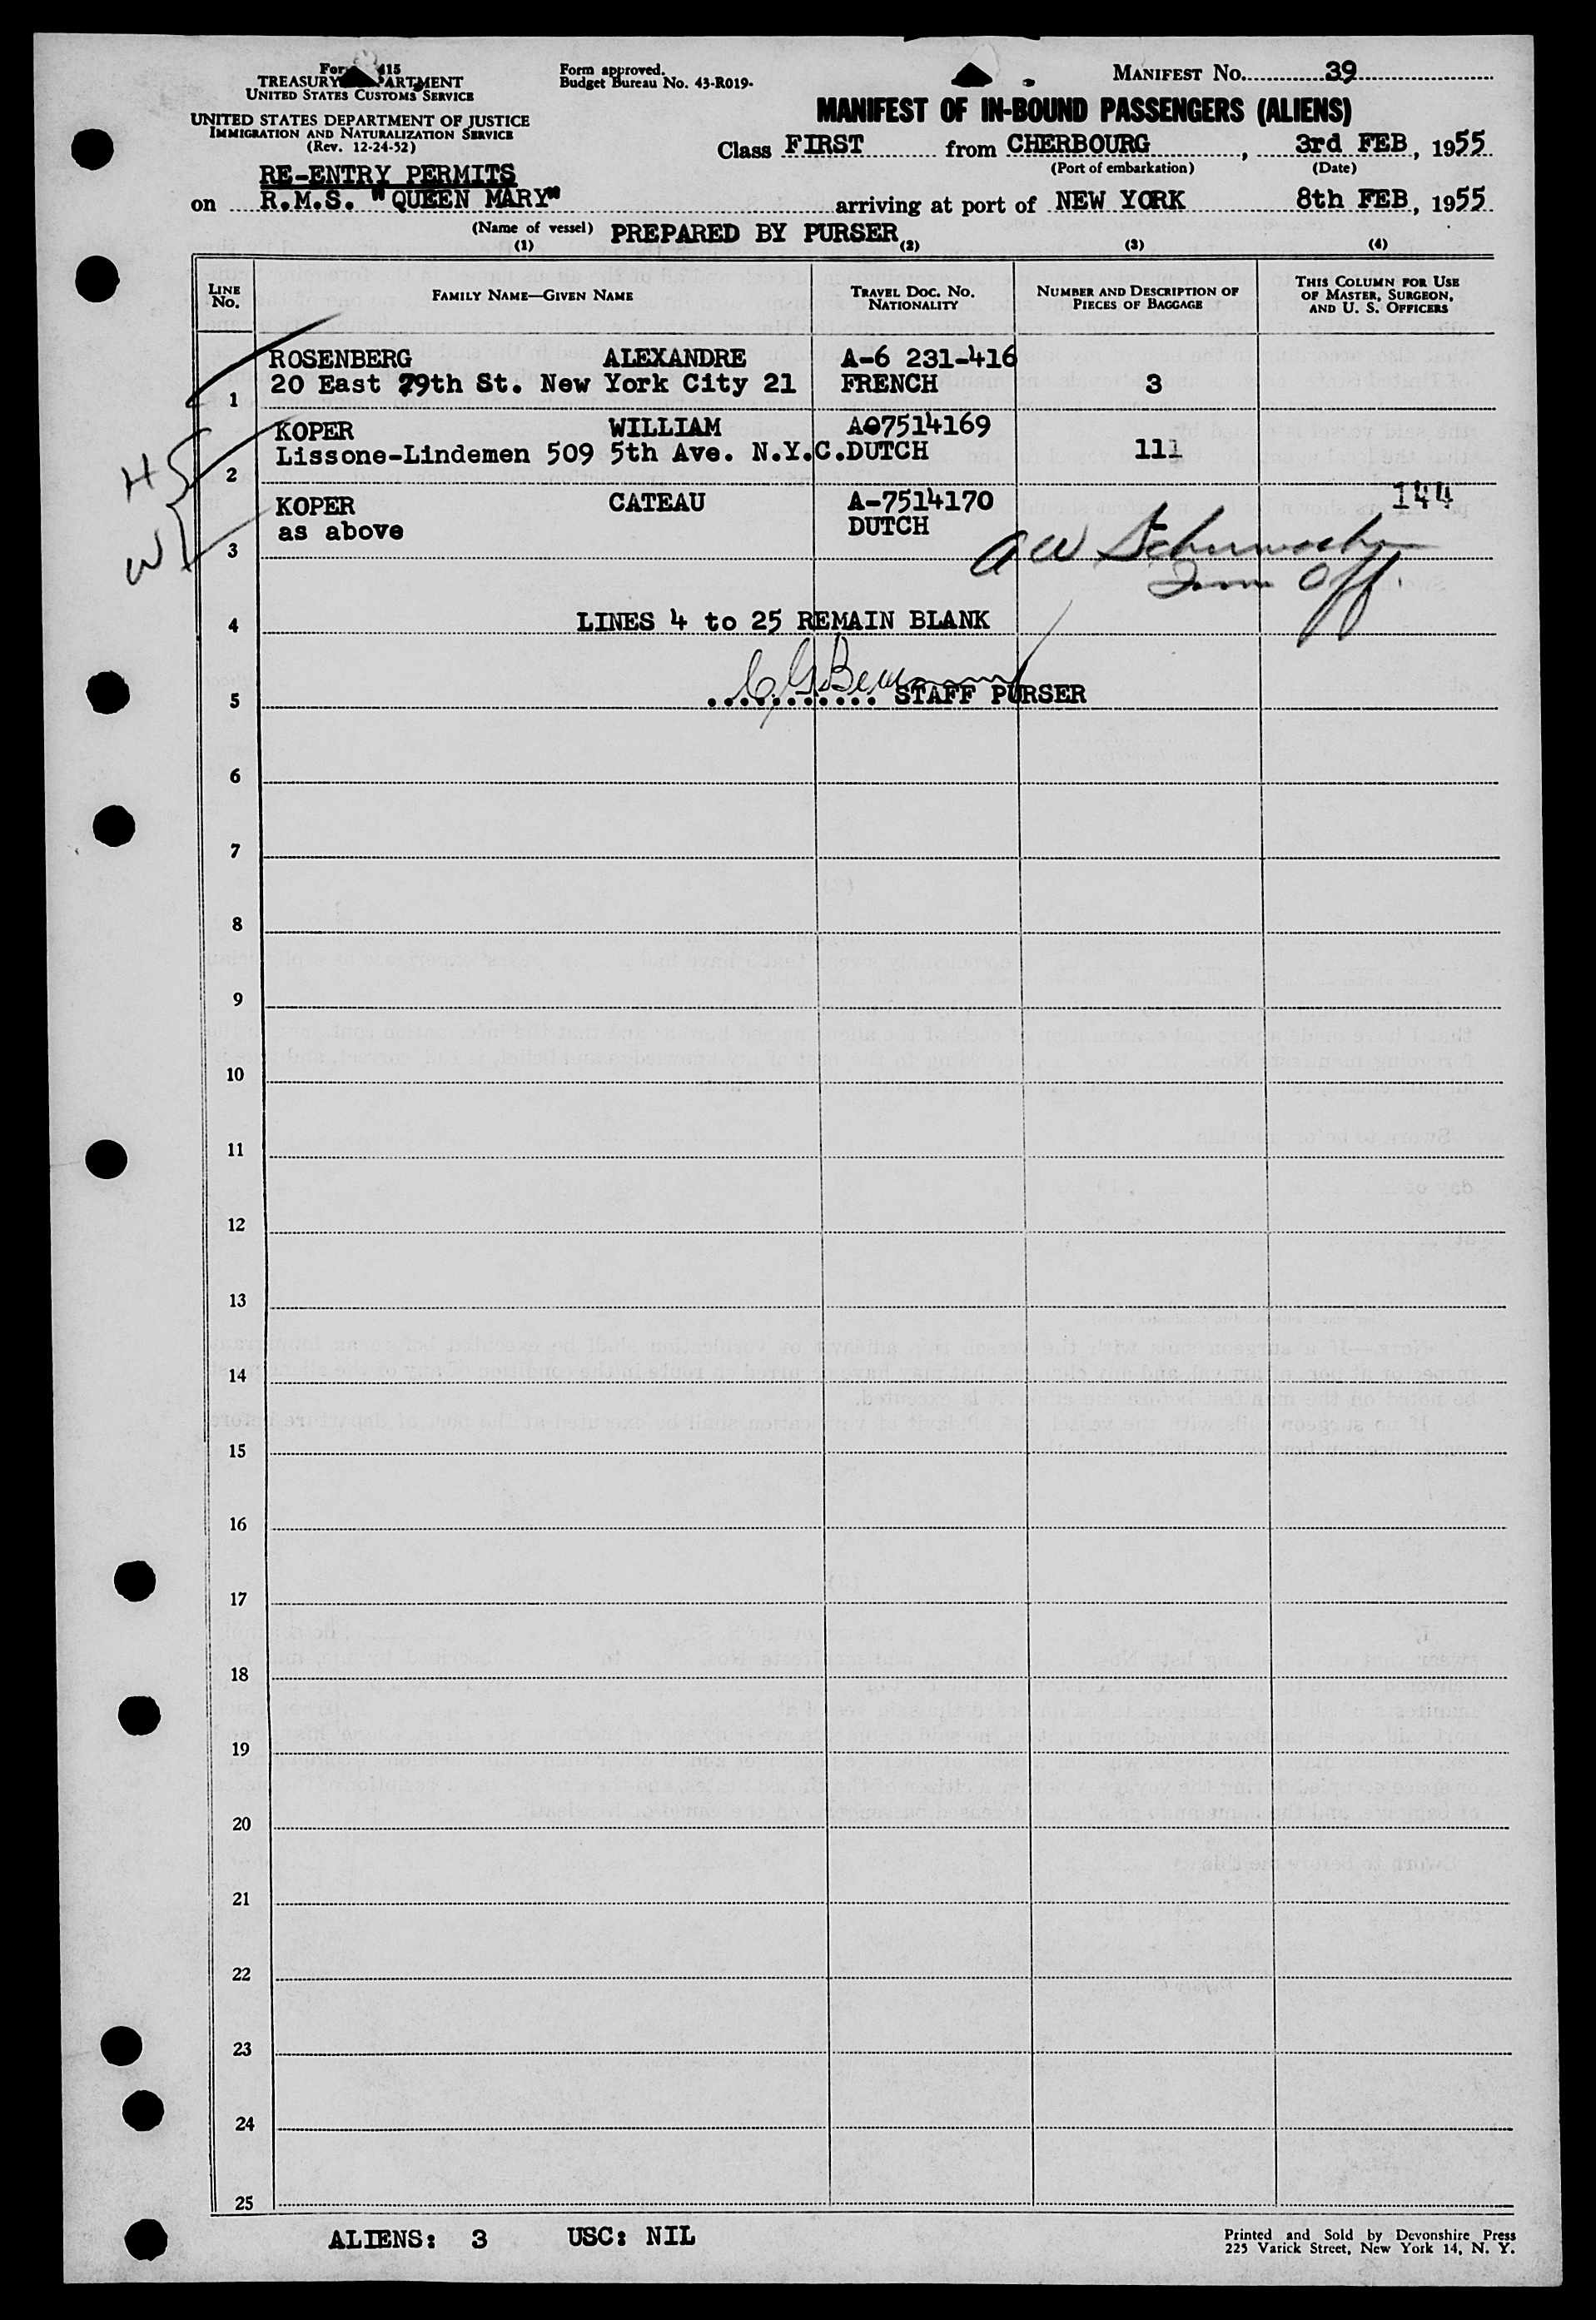 Form 415
TREASURY DEPARTMENT
UNITED STATES CUSTOMS SERVICE
UNITED STATES DEPARTMENT OF JUSTICE
IMMIGRATION AND NATURALIZATION SERVICE
(Rev. 12-24-52)
Form approved.
Budget Bureau No. 43-R019-
MANIFEST NO. 39
MANIFEST OF IN-BOUND PASSENGERS (ALIENS)
Class FIRST from CHERBOURG, 3rd FEB, 1955
(Port of embarkation) (Date)
RE-ENTRY PERMITS
on R.M.S. "QUEEN MARY" arriving at port of NEW YORK 8th FEB, 1955
(Name of vessel) PREPARED BY PURSER
(1) (2) (3) (4)
LINE NO.
FAMILY NAME—GIVEN NAME
TRAVEL DOC. NO.
NATIONALITY
NUMBER AND DESCRIPTION OF
PIECES OF BAGGAGE
THIS COLUMN FOR USE
OF MASTER, SURGEON,
AND U. S. OFFICERS
ROSENBERG ALEXANDRE A-6 231-416
1 20 East 79th St. New York City 21 FRENCH 3
KOPER WILLIAM A07514169
2 Lissone-Lindemen 509 5th Ave. N.Y.C. DUTCH 111
H
KOPER CATEAU A-7514170 144
3 as above DUTCH -
W
Imm Off.
4 LINES 4 to 25 REMAIN BLANK
5 ........... STAFF PURSER
6
7
8
9
10
11
12
13
14
15
16
17
18
19
20
21
22
23
24
25
ALIENS: 3 USC: NIL
Printed and Sold by Devonshire Press
225 Varick Street, New York 14, N. Y.